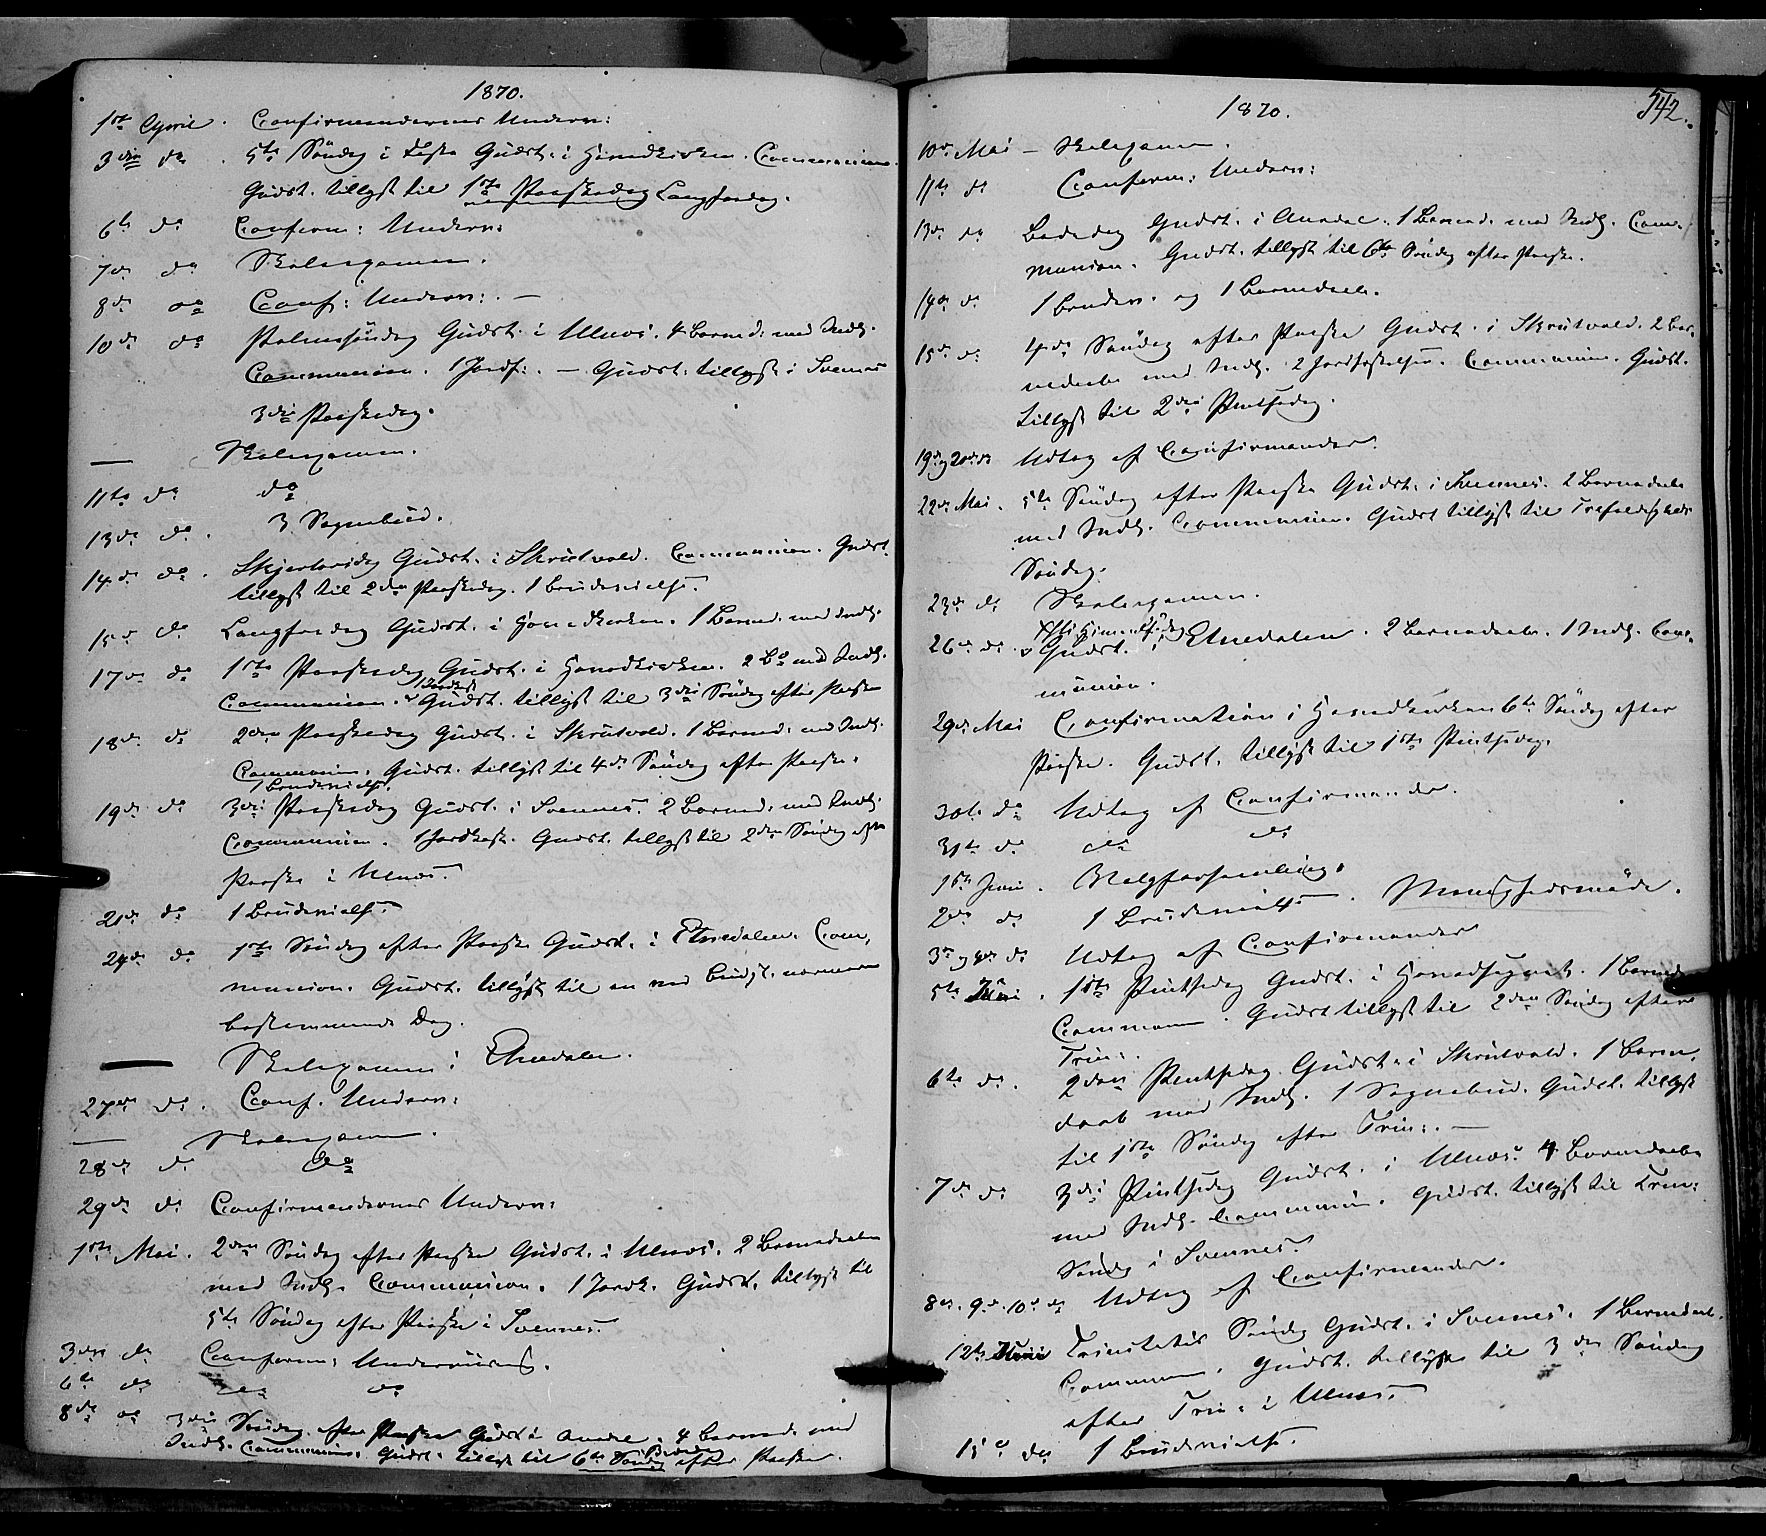 1870.
1ste April. Confirmandernes Underv:
3die do. 5te Söndag i Faste Gudst. i Hovedkirken. Communion.
Gudst. tillyst til 1ste Paaskedag Langfredag.
6te do Confirm: Underv:
7de do Skoleexamen.
8de do Conf: Underv: —
10de do Palmesöndag Gudst. i Ulnæs. 4 Barned: med Indl.
Communion. 1 Jordf: . — Gudst. tillyst i Svennæs
3die Paaskedag.
— Skoleexamen.
11te do do
13de do. 3 Sognebud.
14de do. Skjertorsdag Gudst. i Skrutvold. Communion. Gudst.
tillyst til 2den Paaskedag. 1 Brudevielse.
15de do Langfredag Gudst. i Hovedkirken. 1 Barned. med Indl.
17de do 1ste Paaskedag Gudst. i Hovedkirken. 2 Bd med Indl.
Communion. 1 Jordfest. Gudst. tillyst til 3die Söndag efter Paaske
18de do 2den Paaskedag Gudst. i Skrutvold. 1 Barned. med Indl.
Communion. Gudst. tillyst til 4de Söndag efter Paaske.
1 Brudevielse.
19de do 3die Paaskedag Gudst. i Svennes. 2 Barned. med Indl.
Communion. 1 Jordkast. Gudst. tillyst til 2den Söndag efter
Paaske i Ulnæs.
21de do 1 Brudevielse.
24de do 1ste Söndag efter Paaske Gudst. i Etnedalen. Com-
munion. Gudst. tillyst til en ved Budst. nærmere
bestemmende Dag.
— Skoleexamen i Etnedalen.
27de do. Conf. Underv:
— Skoleexamen.
28de do do
29de do Confirmandernes Underv:
1ste Mai. 2den Söndag efter Paaske Gudst. i Ulnæs. 2 Barnedaab
med Indl. Communion. 1 Jordk. Gudst. tillyst til
5te Söndag efter Paaske i Svennes.
3die do Confirm: Underviisng.
6te do do do
8de do 3die Söndag efter Paaske Gudst. i 4 Barned. med
Indl. Communion. Gudst. tillyst til 6te Söndag Bededag efter Paaske.
1870.
542.
10de Mai — Skoleexamen.
11te do Confirm: Underv:
13de do Bededag Gudst. i 1 Barned. med Indl. Com-
munion. Gudst. tillyst til 6te Söndag efter Paaske.
14de do 1 Brudev. og 1 Barnedaab.
15de do 4de Söndag efter Paaske Gudst. i Skrutvold. 2 Bar-
nedaab med Indl. 2 Jordfæstelser. Communion. Gudst.
tillyst til 2den Pintsedag.
19de og 20de do Udtog af Confirmander.
22de Mai. 5te Söndag efter Paaske Gudst. i Svennes. 2 Barnedaab
med Indl. Communion. Gudst tillyst til Trefoldigheds
Söndag.
23de do Skoleexamen.
26de do. Christi Himmelf: dag
Gudst. i Etnedalen. 2 Barnedaab. 1 Indl. Com-
munion.
29de Mai Confirmation i Hovedkirken 6te Söndag efter
Paaske. Gudst. tillyst til 1ste Pintsedag.
30te do Udtog af Confirmander.
31te do do do
1ste Juni. Valgforsamling.
2den do 1 Brudevielse. Menighedsmöde.
3de og 4de do Udtog af Confirmander
5te Juni. 1ste Pintsedag Gudst. i Hovedsognet. 1 Barned.
Communion. Gudst tillyst til 2den Söndag efter
Trin:.
6te do. 2den Pintsedag Gudst. i Skrutvold. 1 Barne-
daab med Indl. 1 Sognebud. Gudst. tillyst
til 1ste Söndag efter Trin:. —
7de do 3die Pintsedag Gudst. i Ulnæs. 4 Barnedaab
med Indl. Communion. Gudst. tillyst til Trin:
Söndag i Svennes.
8de. 9de. 10de do Udtog af Confirmander.
12te Juni Trinitatis Söndag Gudst. i Svennes. 1 Barnedaab.
Communion. Gudst. tillyst til 3die Söndag
efter Trin: i Ulnæs.
15de do 1 Brudevielse.